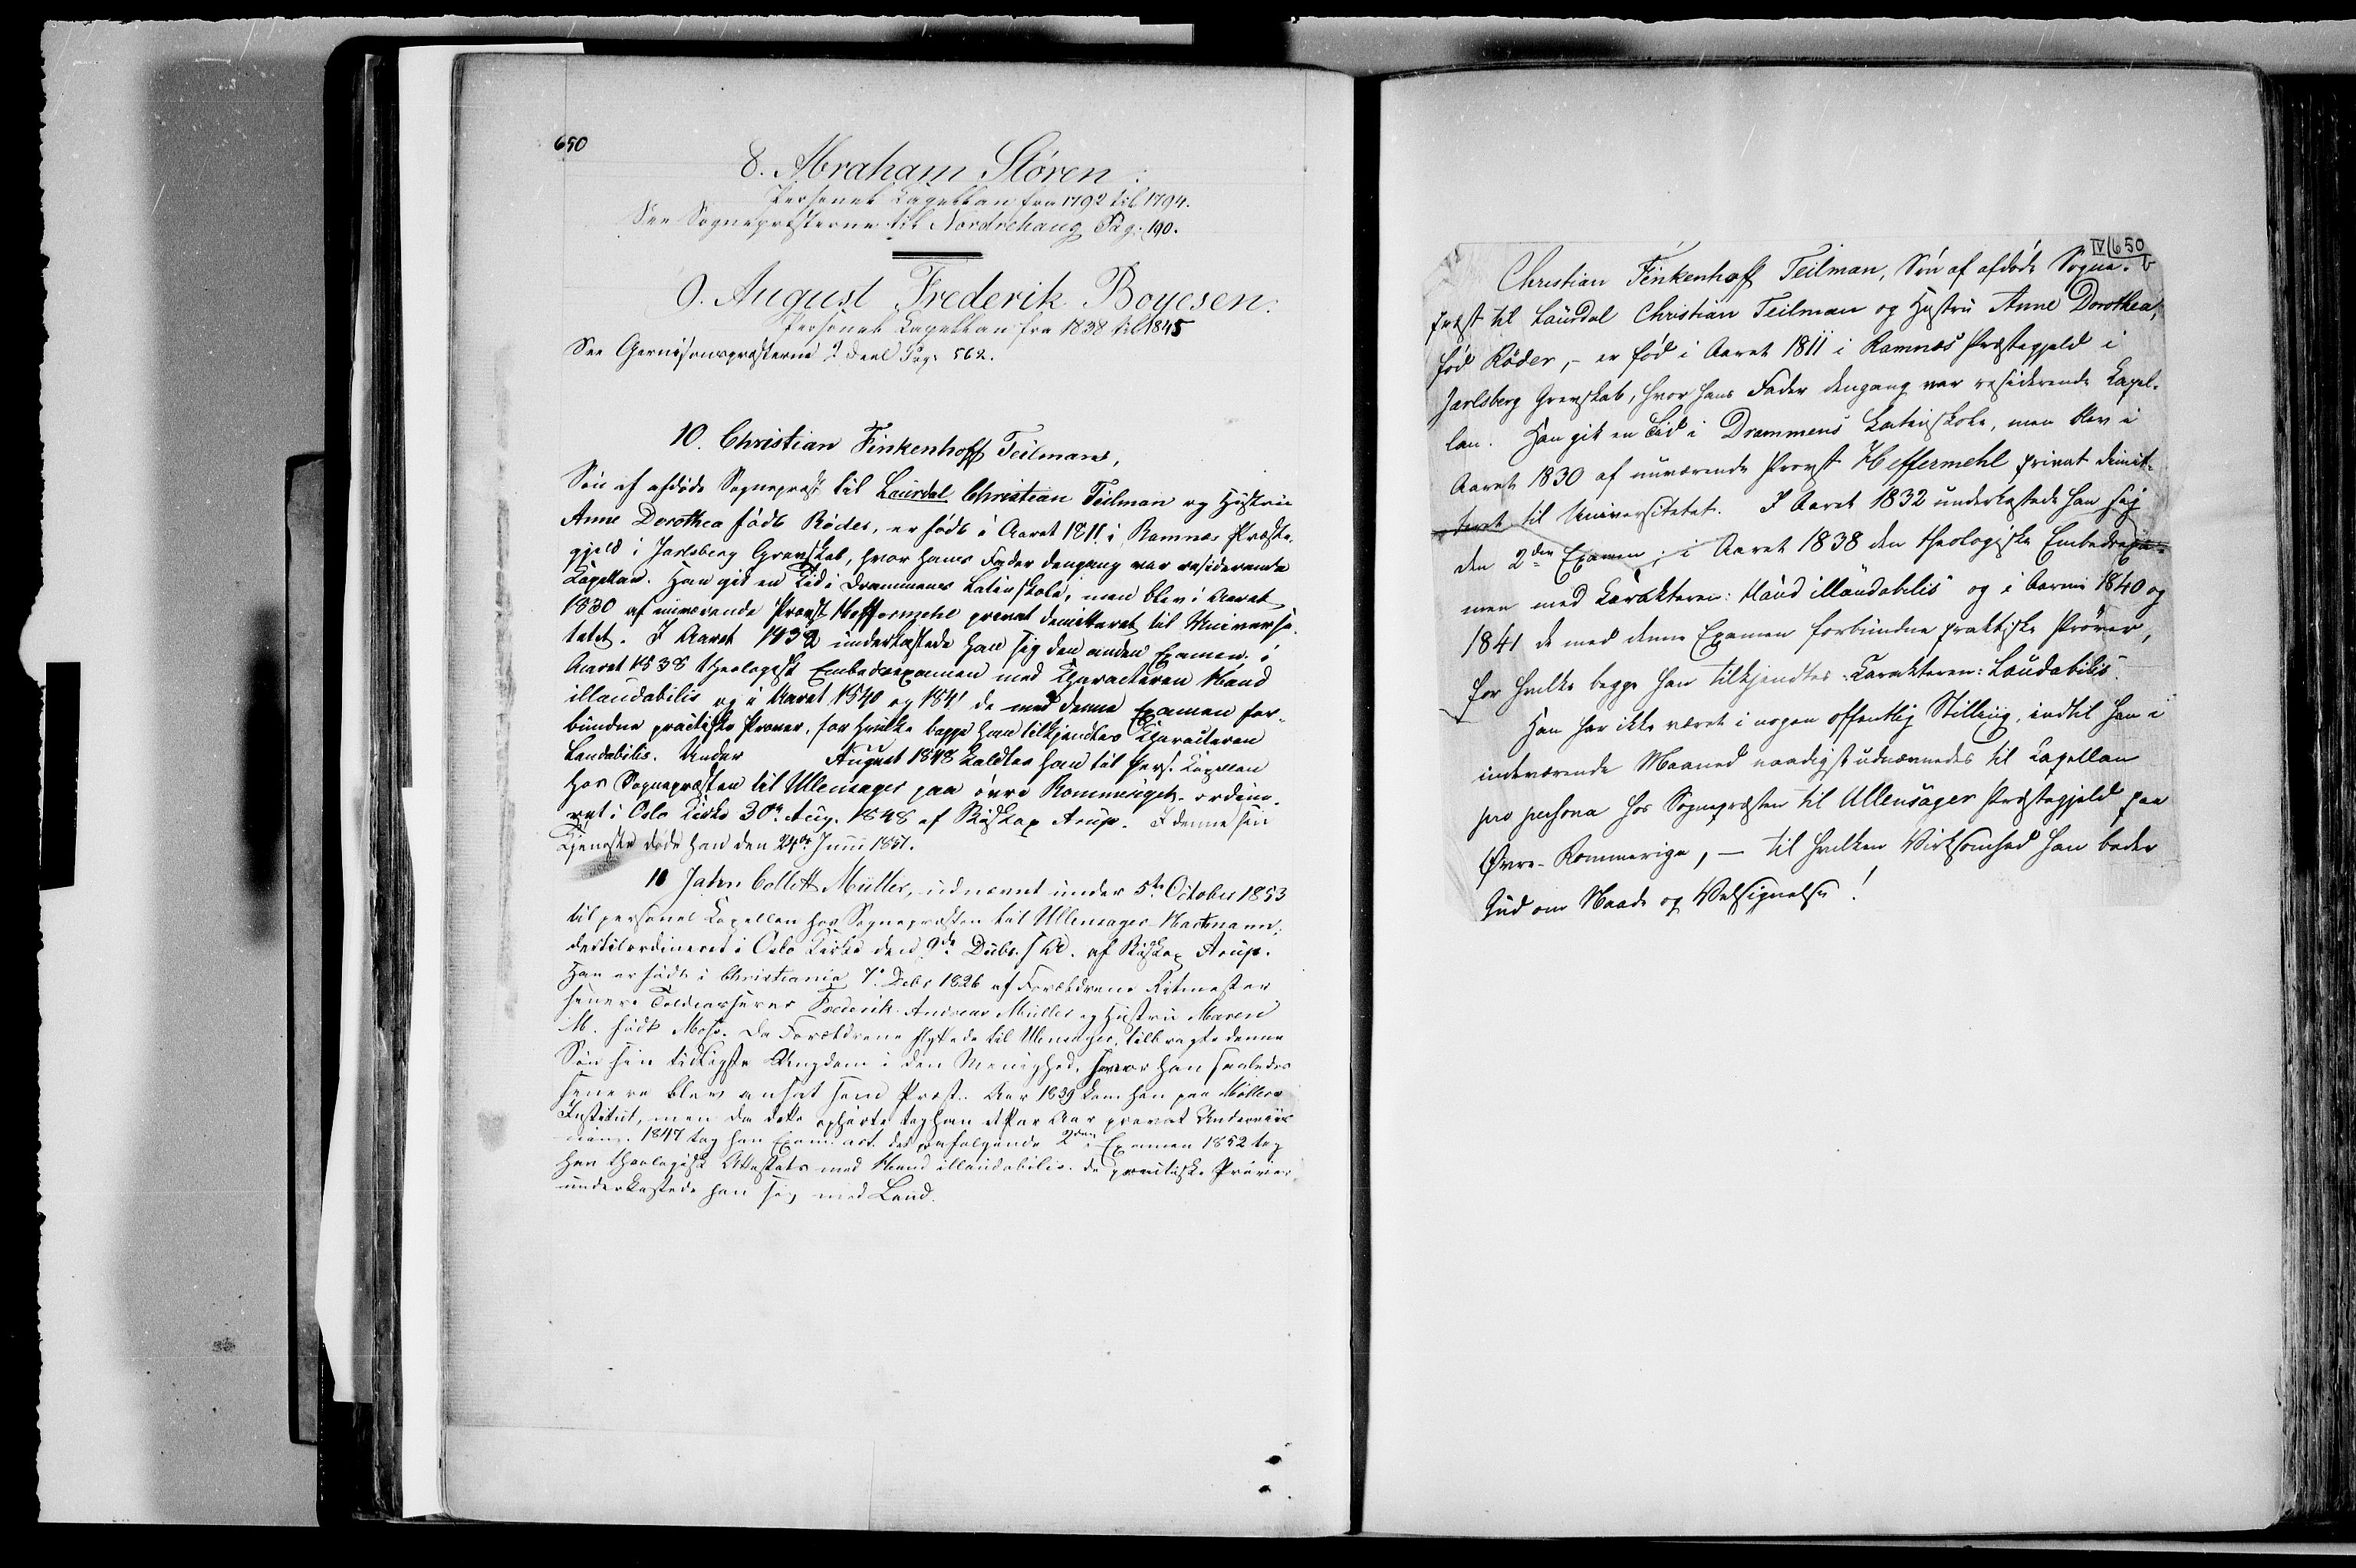 650
8. Abraham Stören:
Personel Kapellan fra 1792 til 1794.
See Sognepræsterne til Nordrehaug Pag. 190.
9. August Frederik Boyesen:
Personel Kapellan fra 1838 til 1845
See Garnisonspræsterne 2 Deel Pag. 562.
10. Christian Finkenhoff Teilman,
Sön af afdöde Sognepræst til Laurdal Christian Teilman og Hustrue
Anne Dorothea födt Röder, er födt i Aaret 1811 i Ramnæs Præste-
gjeld i Jarlsberg Grevskab, hvor hans Fader dengang var residerende
Kapellan. Han gik en Tid i Drammens Latinskole, men blev i Aaret
1830 af nuværende Provst Heffermehl privat demitteret til Universi-
tetet. I Aaret 1432 underkastede han sig den anden Examen, i
Aaret 1838 theologisk Embedsexamen med Characteren Haud
illaudabilis og i Aaret 1840 og 1841 de med denne Examen for-
bundne practiske Prøver, for hvilke begge han tilkjendtes Characteren
Laudabilis. Under August 1848 kaldtes han til pers. Kapellan
hos Sognepræsten til Ullensager paa övre Rommerige, ordine-
ret i Oslo Kirke 30te Aug. 1848 af Biskop Arup. I denne sin
Tjeneste döde han den 24de Juni 1851.
10 Jahn Collett Müller, udnævnt under 5te October 1853
til personel Kapellan hos Sognepræsten til Ullensager Hartmann,
dertil ordineret i Oslo Kirke den 9de Decbr. s. A. af Biskop Arup.
Han er födt i Christiania 7. Debr 1826 af Forældrene Ritmester
senere Toldkasserer Frederik Andreas Müller og Hustru Maren
M. födt Moss. Da Forældrene flyttede til Ullensager, tilbragte denne
Sön sin tidligste Ungdom i den Menighed, hvor han saaledes
senere blev ansat som Præst. Aar 1839 kom han paa Möllers
Institut, men da dette ophørte tog han et Par Aar privat Underviis-
ning. 1847 tog han Exam. art. det paafølgende 2den Examen 1852 tog
han theologisk Attestats med Haud illaudabilis. de practiske Prøver
underkastede han sig med Laud.
IV/650
b
Christian Finkenhoff Teilman, Sön af afdöde Sogne-
præst til Laurdal Christian Teilman og Hustru Anne Dorothea,
föd Röder, - er föd i Aaret 1811 i Ramnæs Præstegjeld i
Jarlsberg Grevskab, hvor hans Fader dengang var residerende Kapel-
lan. Han gik en Tid i Drammens Latinskole, men blev i
Aaret 1830 af nuværende Provst Heffermehl privat dimit-
teret til Universitetet. I Aaret 1832 underkastede han sig
den 2den Examen; i Aaret 1838 den theologiske Embedsexa-
men med Karakteren: Haud illaudabilis og i Aarene 1840 og
1841 de med denne Examen forbundne praktiske Prøver,
for hvilke begge han tilkjendtes Karakteren: Laudabilis.
Han har ikke været i nogen offentlig Stilling, indtil han i
indeværende Maaned naadigst udnævnedes til Kapellan
pro persona hos Sognepræsten til Ullensager Præstegjeld paa
Øvre-Rommerige, - til hvilken Virksomhed han beder
Gud om Naade og Velsignelse!